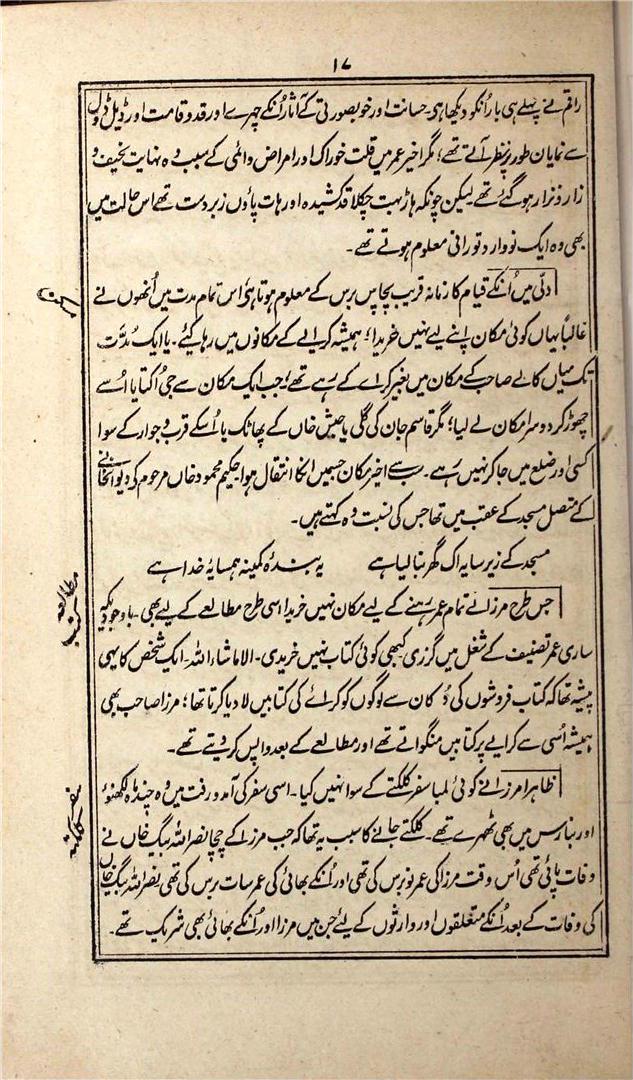 ۱۷
راقم نے پہلے ہی بار اُنکو دیکھا ہی۔ حسانت اور خوبصورتی کے آثار اُنکے چہرے اور قد و قامت اور ڈیل ڈول
سے نمایان طور پر نظر آتے تھے؛ مگر اخیر عمر میں قلت خوراک اور امراض دائمی کے سبب وہ نہایت نحیف و
زار و نزار ہوگئے تھے لیکن چونکہ ہاڑ بہت چکلا قد کشیدہ اور ہات پاؤں زبردست تھے اس حالت میں
بھی وہ ایک نو وارد تورانی معلوم ہوتے تھے۔
دلّی میں اُنکے قیام کا زمانہ قریب پچاس برس کے معلوم ہوتا ہی؛ اس تمام مدت میں اُنھوں نے
غالباً یہاں کوئی مکان اپنے لیے نہیں خریدا؛ ہمیشہ کرایے کے مکانوں میں رہا کیے۔ یا ایک مُدّت
تک میاں کالے صاحب کے مکان میں بغیر کراے کے رہے تھے؛ جب ایک مکان سے جی اُکتایا اُسے
چھوڑ کر دوسرا مکان لے لیا؛ مگر قاسم جان کی گلی یا حبش خاں کے پھاٹک یا اُسکے قرب و جوار کے سوا
کسی اور ضلع میں جا کر نہیں رہے۔ سب سے اخیر مکان جسمیں انکا انتقال ہوا حکیم محمود خاں مرحوم کو دیوانخانے
کے متصل مسجد کے عقب میں تھا جس کی نسبت وہ کہتے ہیں۔
مسجد کے زیر سایہ اک گھر بنا لیا ہے یہ بندۂ کمینہ ہمسایۂ خدا ہے
مطالعہ کتب
جس طرح مرزا نے تمام عمر رہنے کے لیے مکان نہیں خریدا اسی طرح مطالعے کے لیے بھی۔ باوجودیکہ
ساری عمر تصنیف کے شغل میں گزری کبھی کوئی کتاب نہیں خریدی۔ الا ماشاءاللہ۔ ایک شخص کا یہی
پیشہ تھا کہ کتاب فروشوں کی دُکان سے لوگوں کو کراے کی کتابیں لا دیا کرتا تھا؛ مرزا صاحب بھی
ہمیشہ اُسی سے کرایے پر کتابیں منگواتے تھے اور مطالعے کے بعد واپس کر دیتے تھے۔
سفر کلکتہ
ظاہرا مرزا نے کوئی لمبا سفر کلکتے کے سوا نہیں کیا۔ اسی سفر کی آمد و رفت میں وہ چند ماہ لکھنؤ
اور بنارس میں بھی ٹھہرے تھے۔ کلکتے جانے کا سبب یہ تھا کہ جب مرزا کے چچا نصراللہ بیگ خاں نے
وفات پائی تھی اُس وقت مرزا کی عمر نو برس کی تھی اور اُنکے بھائی کی عمر سات برس کی تھی نصراللہ بیگ خاں
کی وفات کے بعد اُنکے متعلقوں اور وارثوں کے لیے جن میں مرزا اور اُنکے بھائی بھی شریک تھے۔